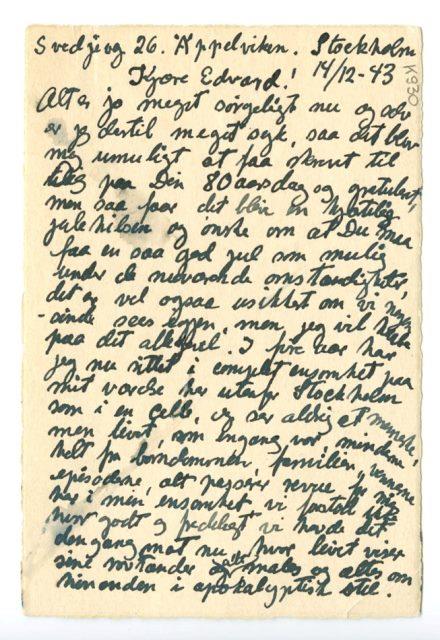 Svedjevg 26. Äppelviken. Stockholm
14/12-43
K930
Kjære Edvard!
Alt er jo meget sørgeligt nu og selv
er jeg dertil meget syk, saa det blev
mig umuligt at faa skrevet til
paa Din 80 aarsdag og gratulert,
men saa faar det bli en hjertelig
julehilsen og ønske om at Du maa
faa en saa god jul som mulig
under de nuværende omstændigheter,
det er vel ogsaa usikkert om vi nogen
-sinde sees igjen, men jeg vil haabe
paa det allikevel. I fire aar har
jeg nu sittet i ensomhet paa
mit værelse her utenfor Stockholm
som i en celle, og ser aldrig et menneske,
men livet, som engang var, minderne
helt fra barndommen, familien, vennene
episoderne, alt passerer revue for mig
her i min ensomhet vi forstod ikke
hvor godt og fredeligt vi havde det
dengang mot nu, hvor livet viser
sine motstander males og ældes om
hinanden i apokalyptisk stil.